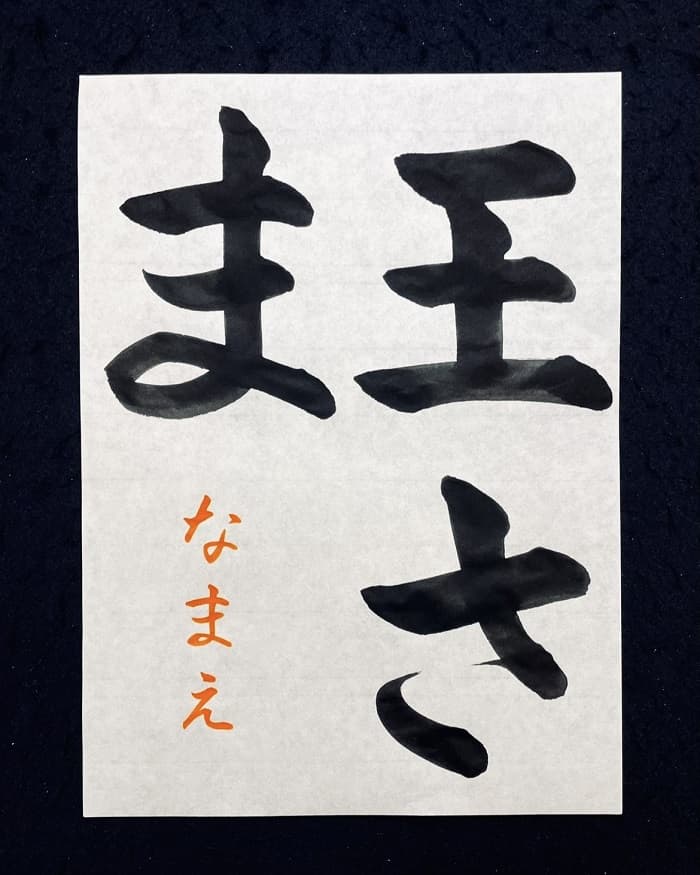 王さ
ま
なまえ